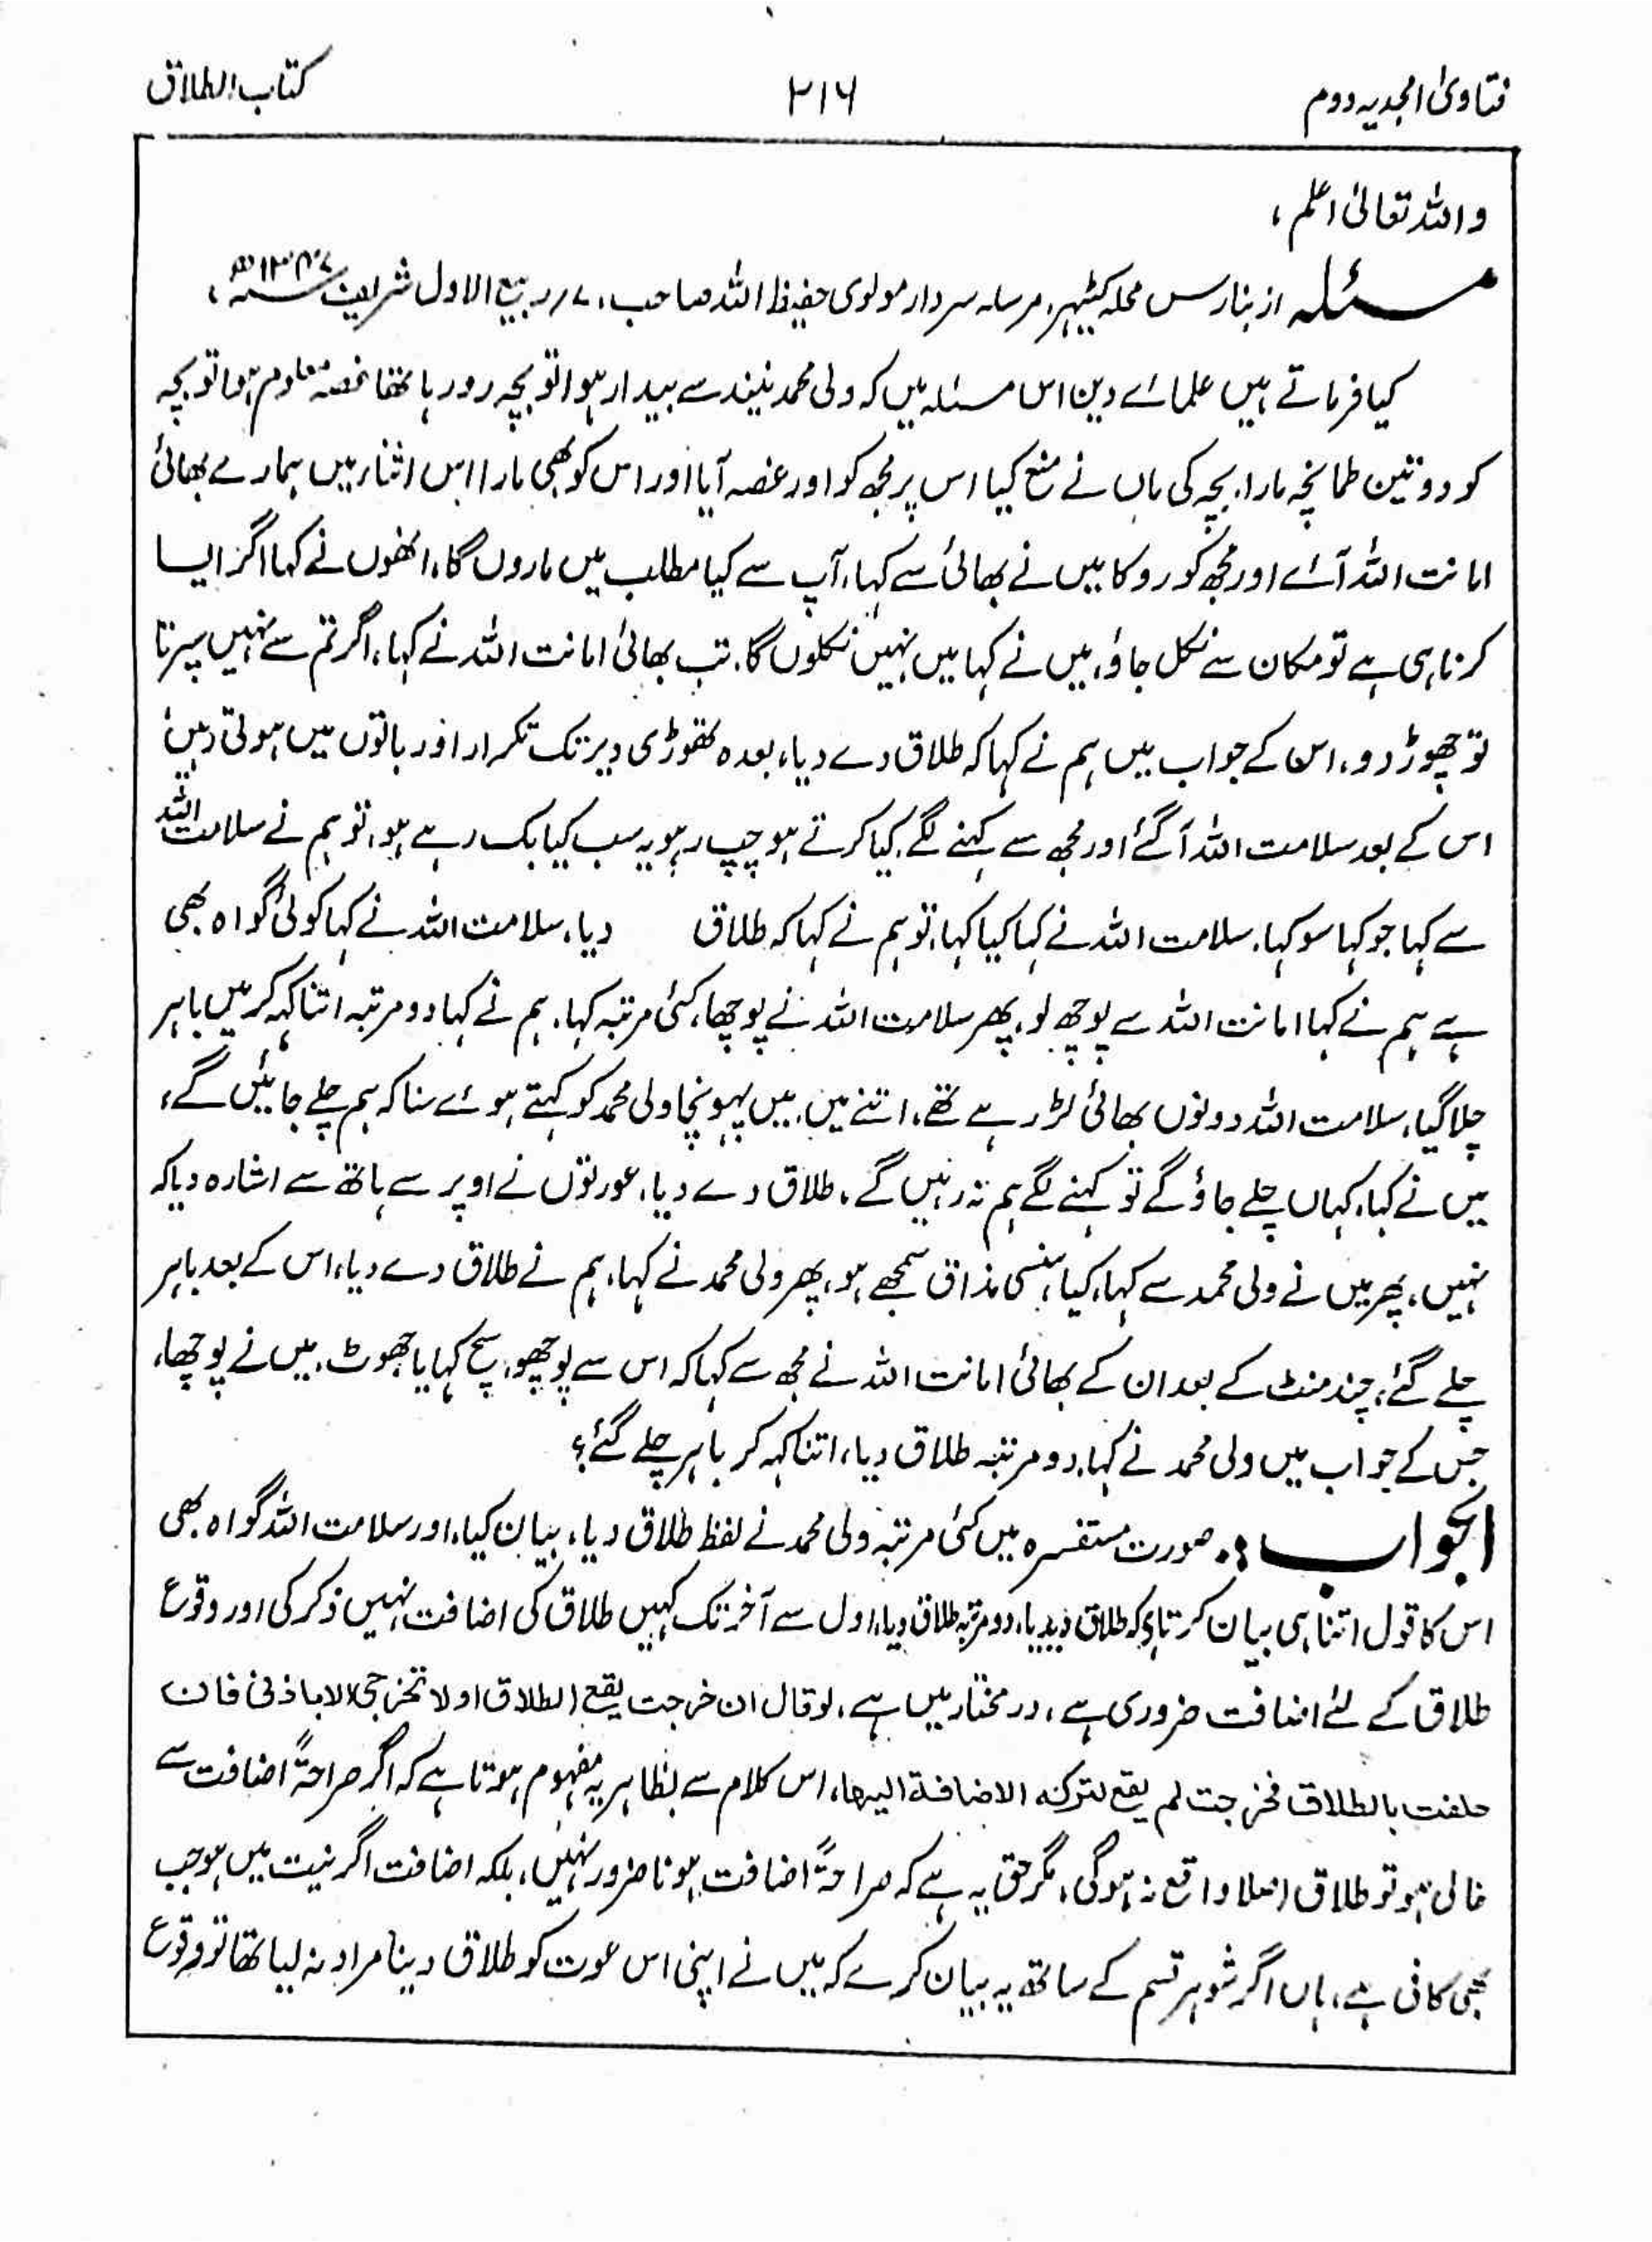 فتاویٰ امجدیہ دوم
۲۱۶
کتاب الطلاق
واللہ تعالیٰ اعلم،
مسئلہ از بنارس محلہ کٹیہر، مرسلہ سردار مولوی حفیظ اللہ صاحب، ۷؍ ربیع الاول شریف
کیا فرماتے ہیں علمائے دین اس مسئلہ میں کہ ولی محمد نیند سے بیدار ہوا تو بچہ رو رہا تھا غصہ معلوم ہوا تو بچہ
کو دو تین طمانچہ مارا، بچہ کی ماں نے منع کیا اس پر مجھ کو اور غصہ آیا اور اس کو بھی مارا اس اثنار میں ہمارے بھائی
امانت اللہ آئے اور مجھ کو روکا میں نے بھائی سے کہا، آپ سے کیا مطلب میں ماروں گا، انھوں نے کہا اگر ایسا
کرنا ہی ہے تو مکان سے نکل جاؤ، میں نے کہا میں نہیں نکلوں گا، تب بھائی امانت اللہ نے کہا، اگر تم سے نہیں
تو چھوڑ دو، اس کے جواب میں ہم نے کہا کہ طلاق دے دیا، بعدہ تھوڑی دیر تک تکرار اور باتوں میں ہوتی رہیں
اس کے بعد سلامت اللہ آگئے اور مجھ سے کہنے لگے، کیا کرتے ہو چپ رہو یہ سب کیا بک رہے ہو، تو ہم نے سلامت اللہ
سے کہا جو کہا سو کہا، سلامت اللہ نے کہا کیا کہا، تو ہم نے کہا کہ طلاق دیا، سلامت اللہ نے کہا کوئی گواہ بھی
ہے ہم نے کہا امانت اللہ سے پوچھ لو، پھر سلامت اللہ نے پوچھا، کئی مرتبہ کہا، ہم نے کہا دو مرتبہ اتنا کہہ کر میں باہر
چلا گیا، سلامت اللہ دونوں بھائی لڑ رہے تھے، اتنے میں، میں پہونچا ولی محمد کو کہتے ہوئے سنا کہ ہم چلے جائیں گے،
میں نے کہا، کہاں چلے جاؤ گے تو کہنے لگے ہم نہ رہیں گے، طلاق دے دیا، عورتوں نے اوپر سے ہاتھ سے اشارہ دیا کہ
نہیں، پھر میں نے ولی محمد سے کہا، کیا، ہنسی مذاق سمجھے ہو، پھر ولی محمد نے کہا، ہم نے طلاق دے دیا، اس کے بعد باہر
چلے گئے، چند منٹ کے بعد ان کے بھائی امانت اللہ نے مجھ سے کہا کہ اس سے پوچھو، سچ کہا یا جھوٹ، میں نے پوچھا،
جس کے جواب میں ولی محمد نے کہا، دو مرتبہ طلاق دیا، اتنا کہہ کر باہر چلے گئے؟
الجواب :۔ صورت مستفسرہ میں کئی مرتبہ ولی محمد نے لفظ طلاق دیا، بیان کیا، اور سلامت اللہ گواہ بھی
اس کا قول اتنا ہی بیان کرتا ہے کہ طلاق دیدیا، دو مرتبہ طلاق دیا، اول سے آخر تک کہیں طلاق کی اضافت نہیں ذکر کی اور وقوع
طلاق کے لئے اضافت ضروری ہے، در مختار میں ہے، لو قال ان خرجت یقع الطلاق او لا تخرجی الا باذنی فانی
حلفت بالطلاق فخرجت لم یقع لترکہ الاضافۃ الیھا، اس کلام سے بظاہر یہ مفہوم ہوتا ہے کہ اگر صراحۃً اضافت سے
خالی ہو تو طلاق اصلا واقع نہ ہوگی، مگر حق یہ ہے کہ صراحۃً اضافت ہونا ضرور نہیں، بلکہ اضافت اگر نیت میں ہو جب
بھی کافی ہے، ہاں اگر شوہر قسم کے ساتھ یہ بیان کرے کہ میں نے اپنی اس عورت کو طلاق دینا مراد نہ لیا تھا تو وقوع